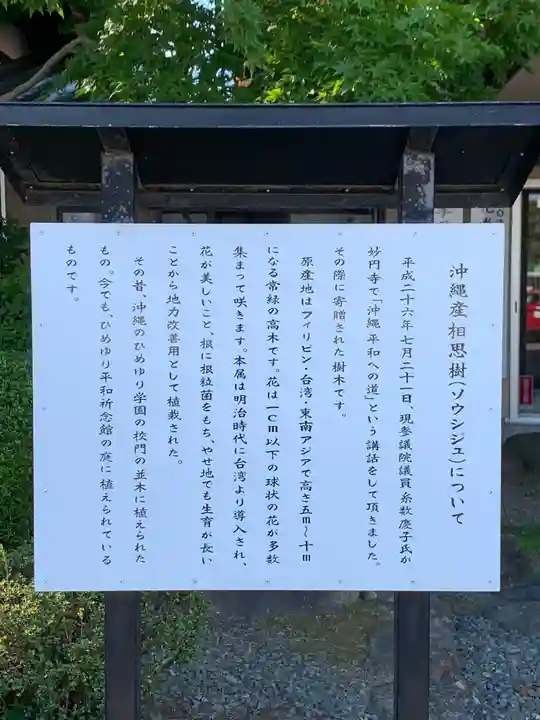 沖縄産相思樹(ソウシジュ)について
平成二十六年七月二十一日、現参議院議員糸数慶子氏が
妙円寺で「沖縄 平和への道」という講話をして頂きました。
その際に寄贈された樹木です。
原産地はフィリピン・台湾・東南アジアで高さ五m〜十m
になる常緑の高木です。花は一cm以下の球状の花が多数
集まって咲きます。本属は明治時代に台湾より導入され、
花が美しいこと、根に根粒菌をもち、やせ地でも生育が良い
ことから地力改善用として植栽された。
その昔、沖縄のひめゆり学園の校門の並木に植えられた
もの。今でも、ひめゆり平和祈念館の庭に植えられている
ものです。